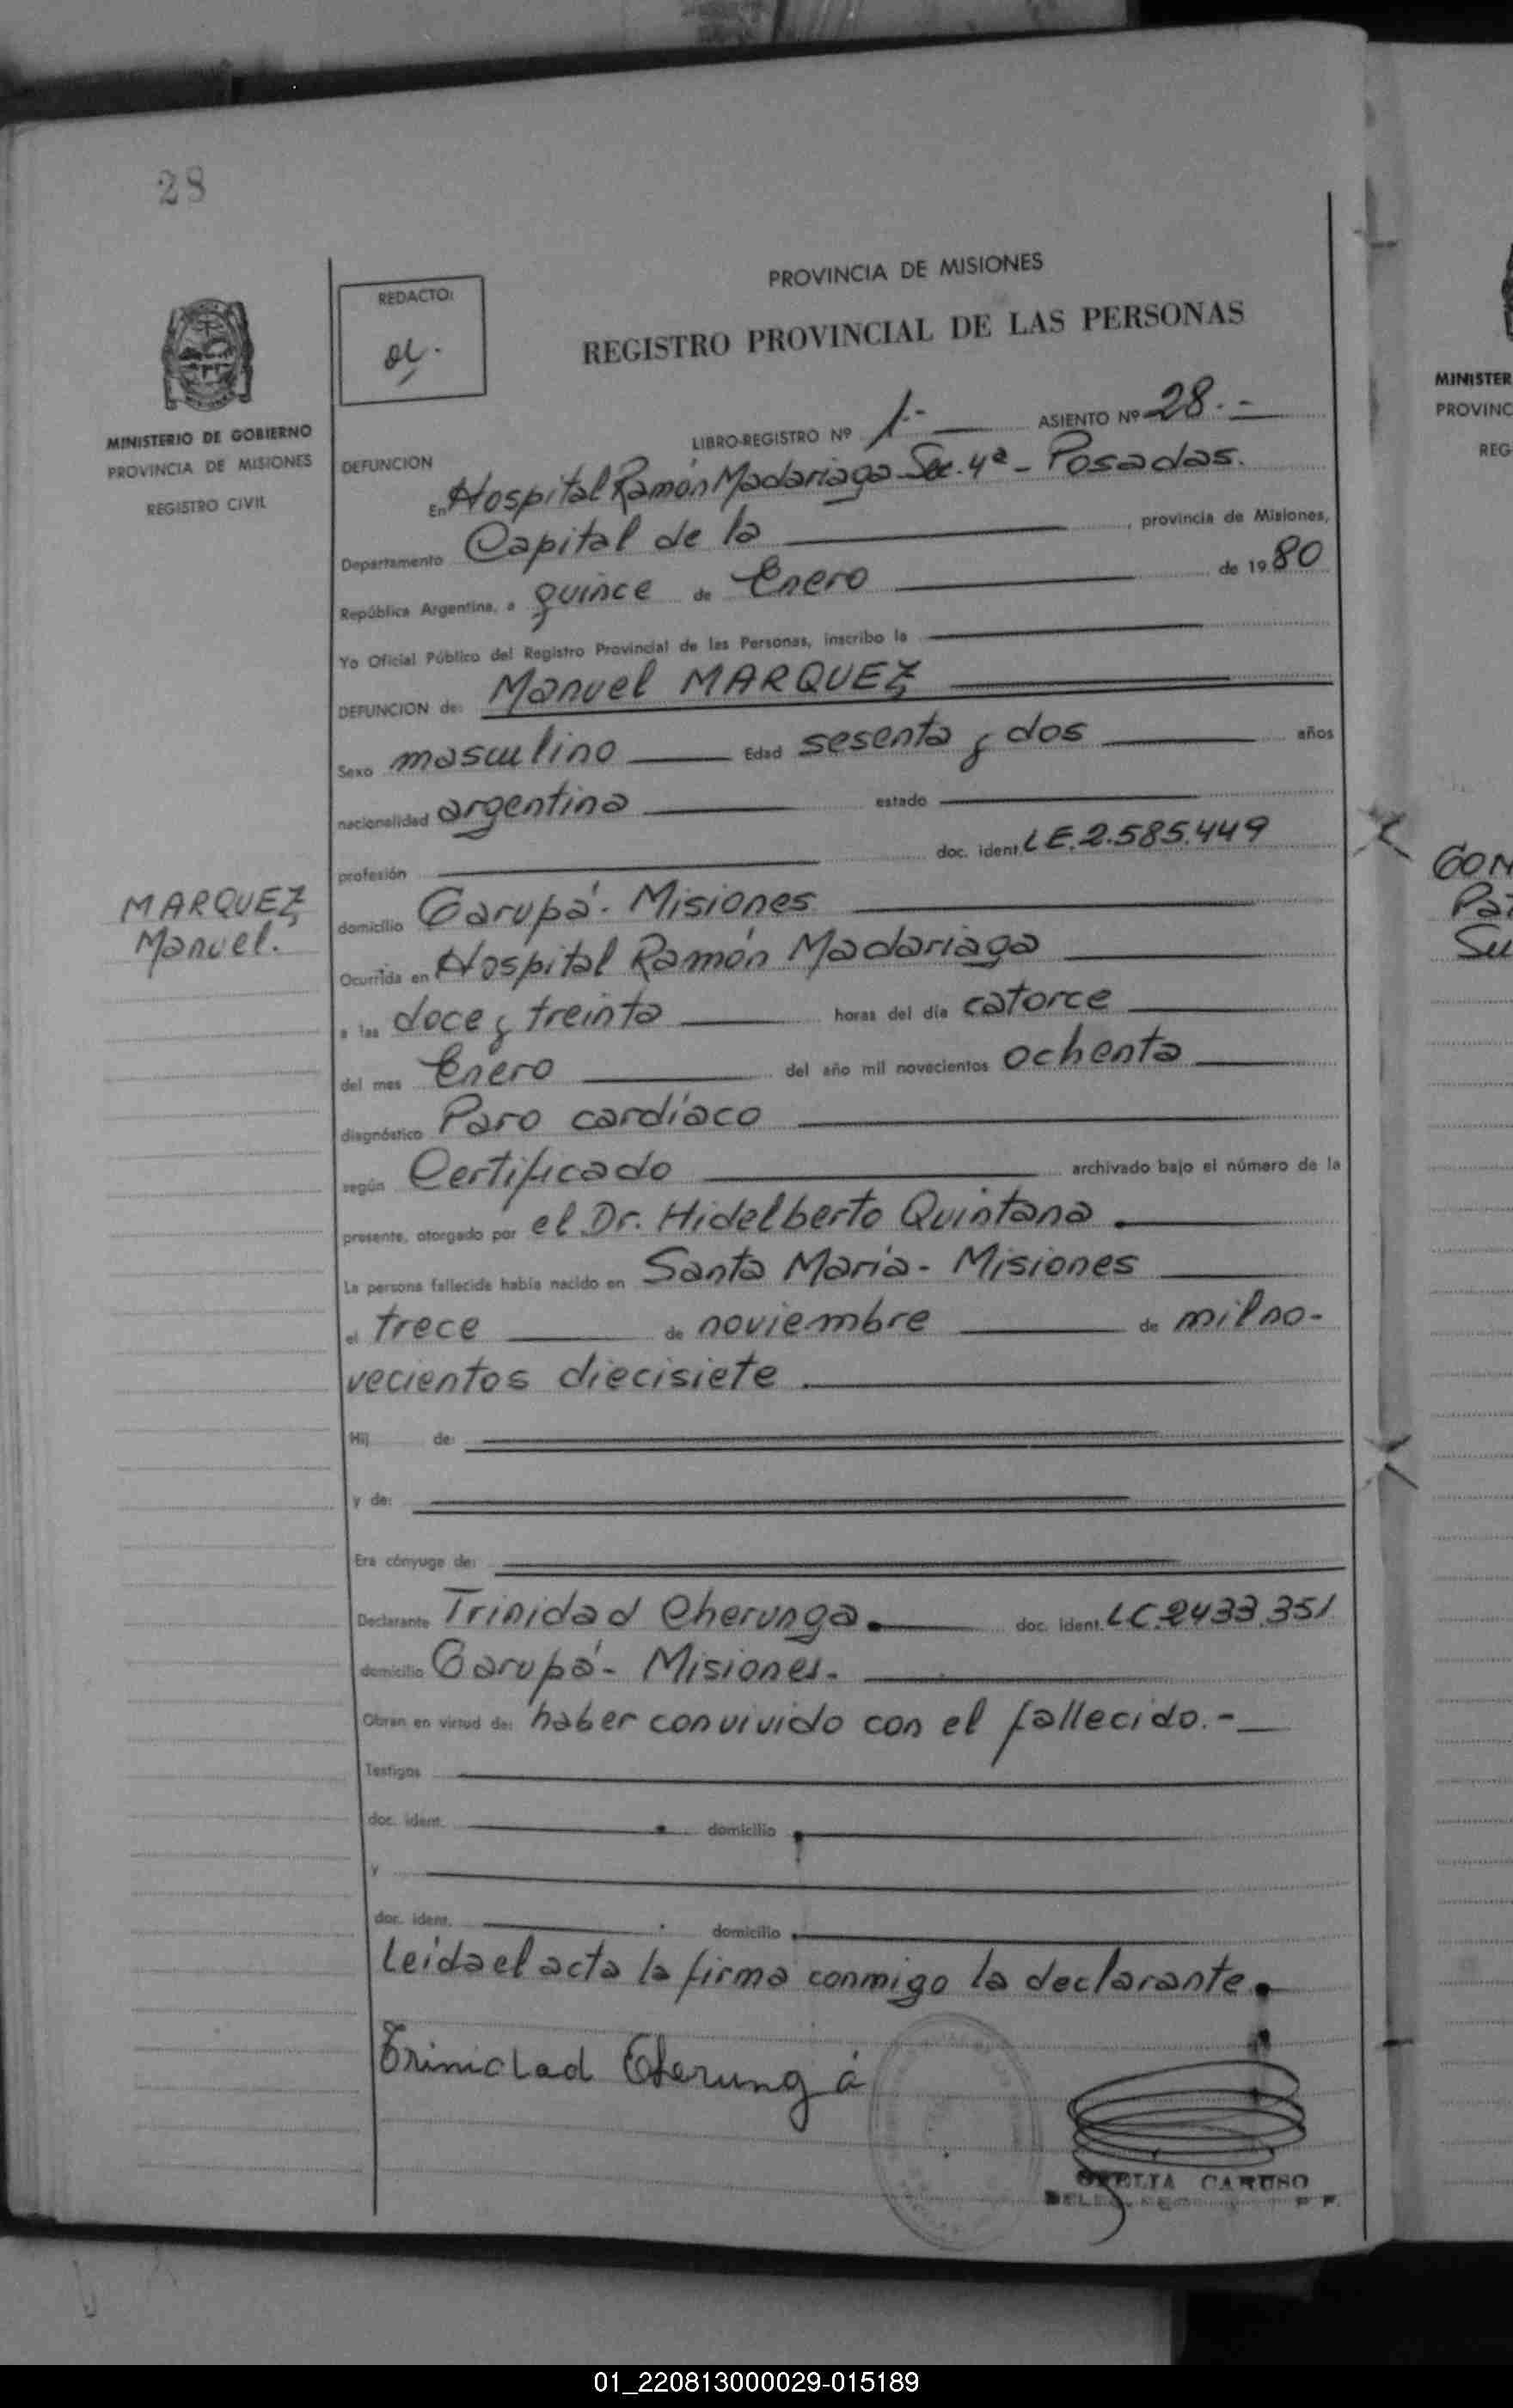 28
PROVINCIA DE MISIONES
REDACTO:
REGISTRO PROVINCIAL DE LAS PERSONAS
MINISTERIO DE GOBIERNO
PROVINCIA DE MISIONES
REGISTRO CIVIL
LIBRO-REGISTRO Nº 1.- ASIENTO Nº 28.-
DEFUNCION
En Hospital Ramón Madariaga Sec. 4ª - Posadas.
Departamento Capital de la , provincia de Misiones,
República Argentina, a quince de Enero de 1980
Yo Oficial Público del Registro Provincial de las Personas, inscribo la
DEFUNCION de: Manuel MARQUEZ
Sexo masculino Edad sesenta y dos años
nacionalidad argentina estado
profesión doc. ident. LE.2.585.449
MARQUEZ
Manuel.
domicilio Garupá - Misiones
Ocurrida en Hospital Ramón Madariaga
a las doce y treinta horas del día catorce
del mes Enero del año mil novecientos ochenta
diagnóstico Paro cardíaco
según Certificado archivado bajo el número de la
presente, otorgado por el Dr. Hidelberto Quintana.
La persona fallecida había nacido en Santa María - Misiones
el trece de noviembre de mil no-
vecientos diecisiete
Hij de:
y de:
Era cónyuge de:
Declarante Trinidad Cherunga. doc. ident. LC.2433.351
domicilio Garupá - Misiones.
Obran en virtud de: haber convivido con el fallecido.-
Testigos
doc. ident. domicilio
y
doc. ident. domicilio
Leída el acta la firma conmigo la declarante.
Trinidad Cherungá
CARUSO
MINISTER
PROVINC
REG
GON
Su
01_220813000029-015189